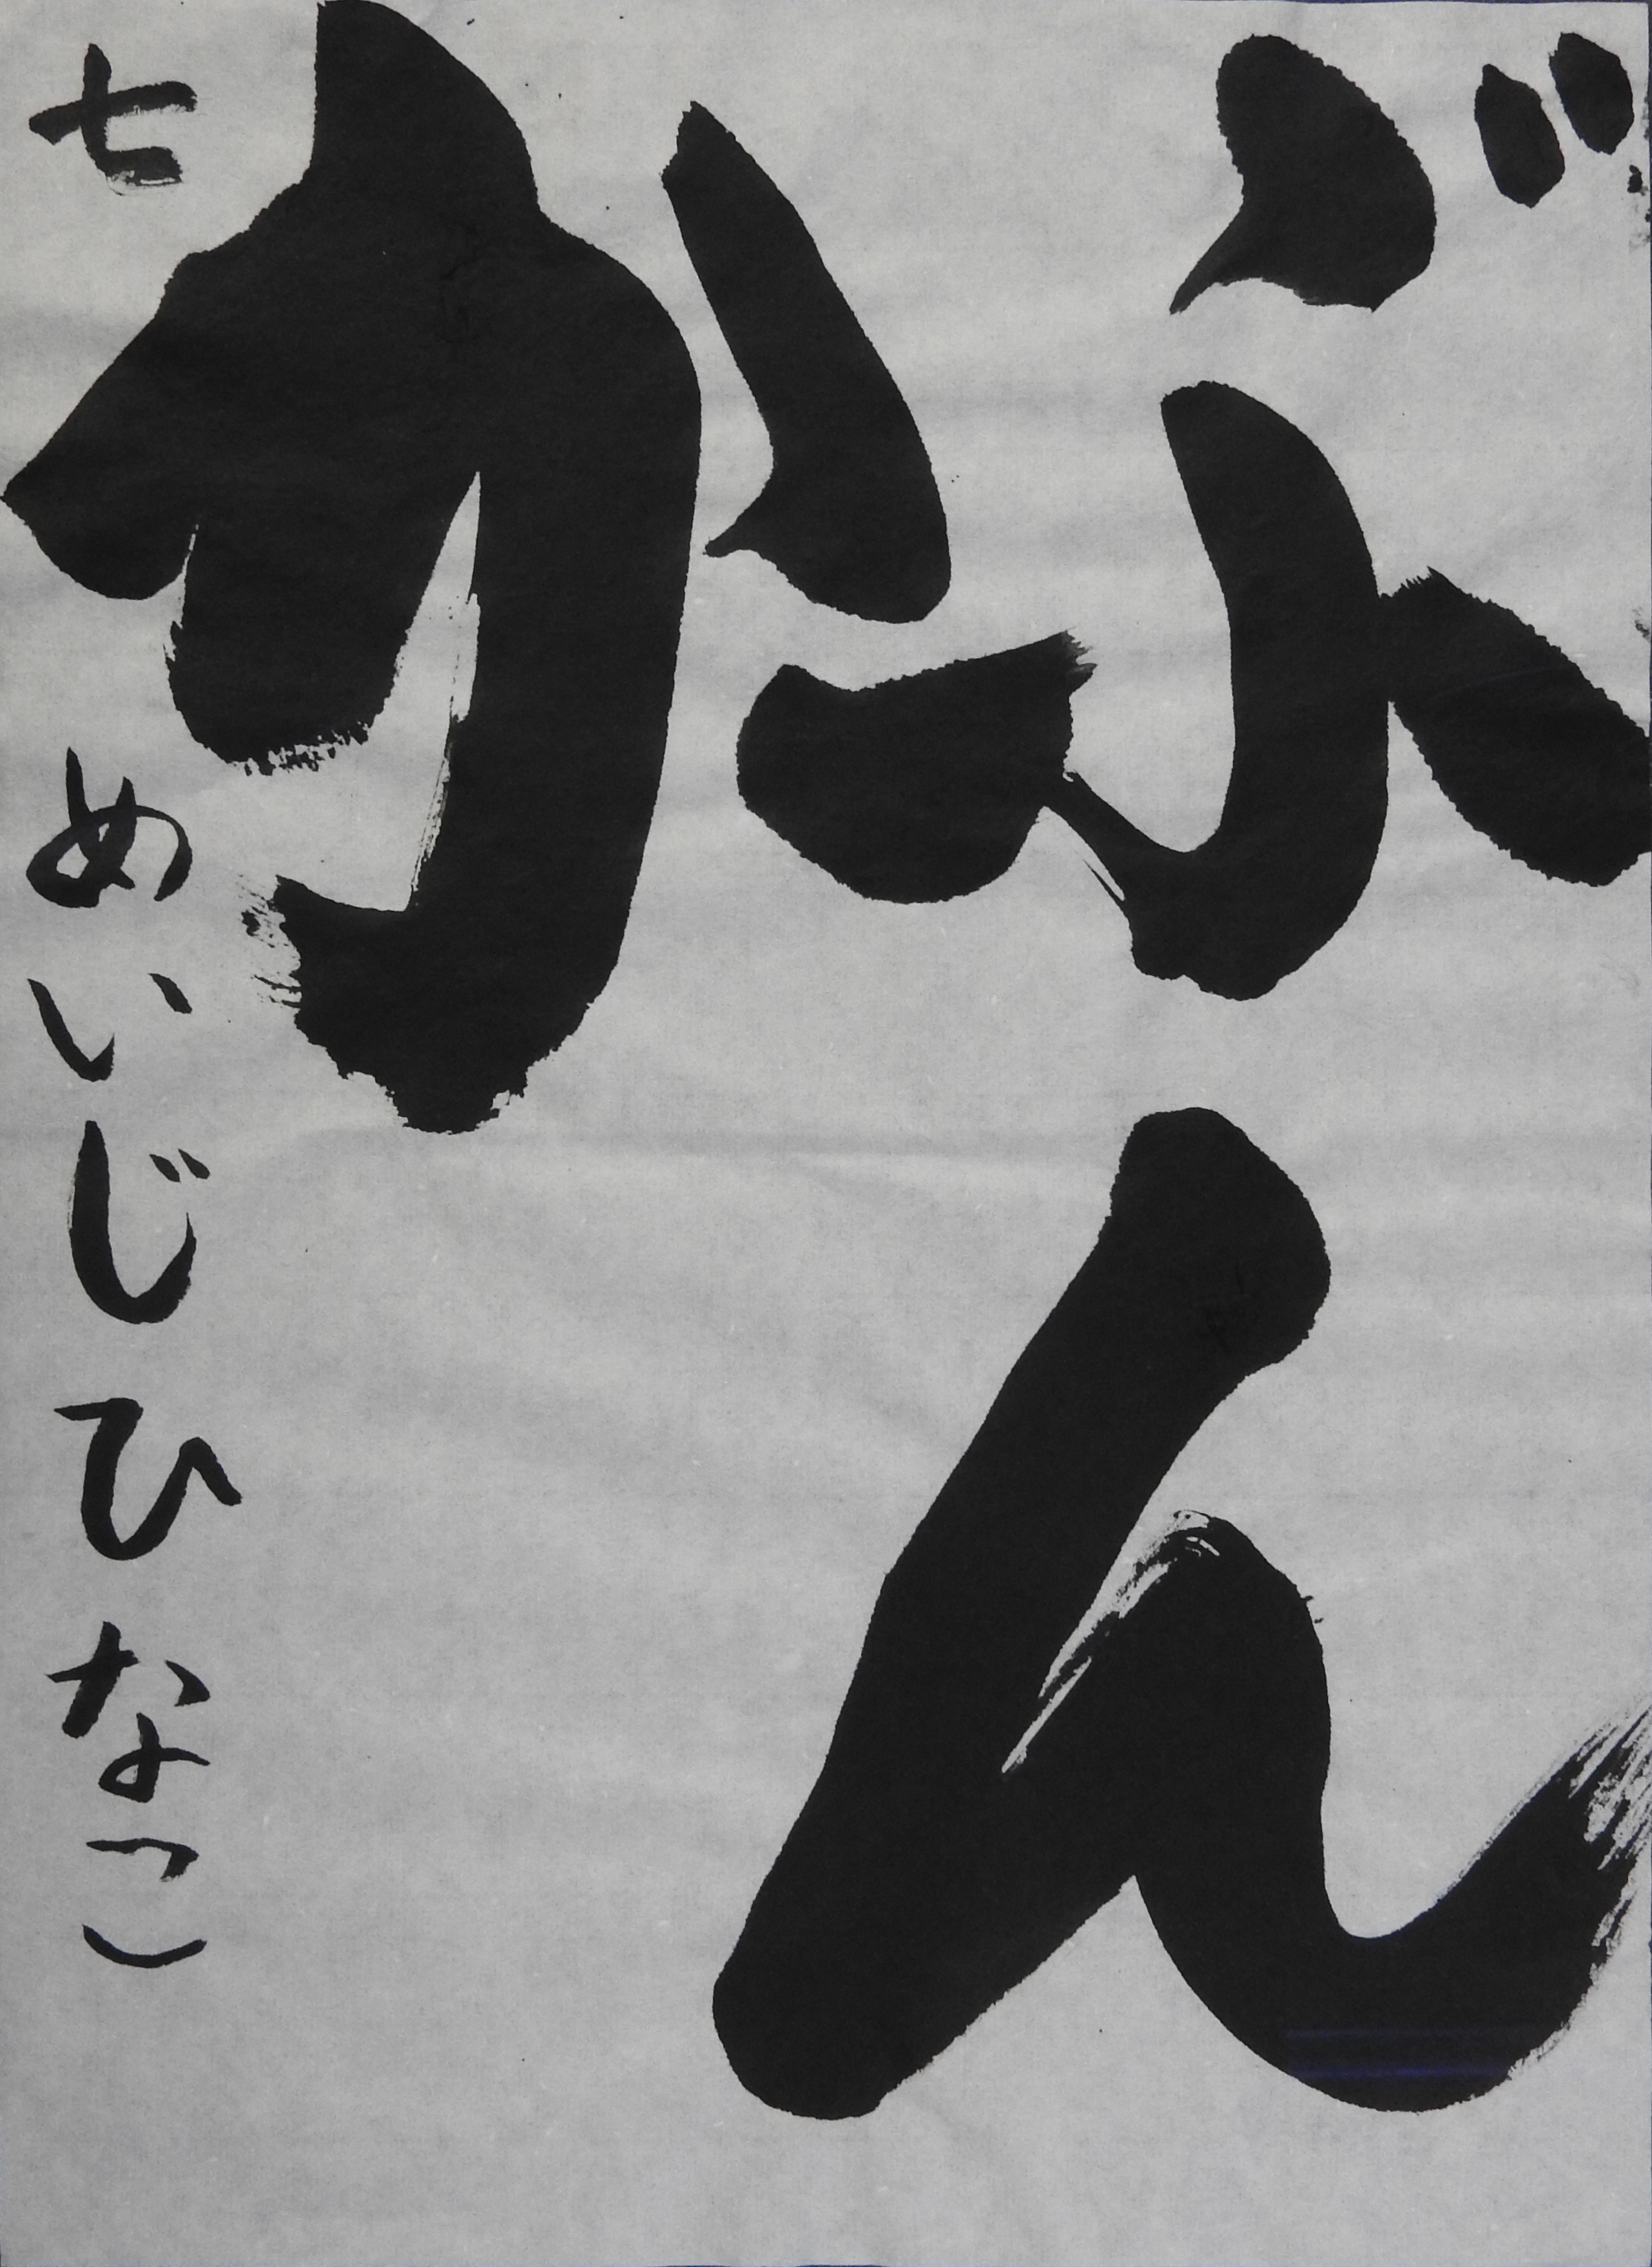 ぶん
か
七 めいじひなこ